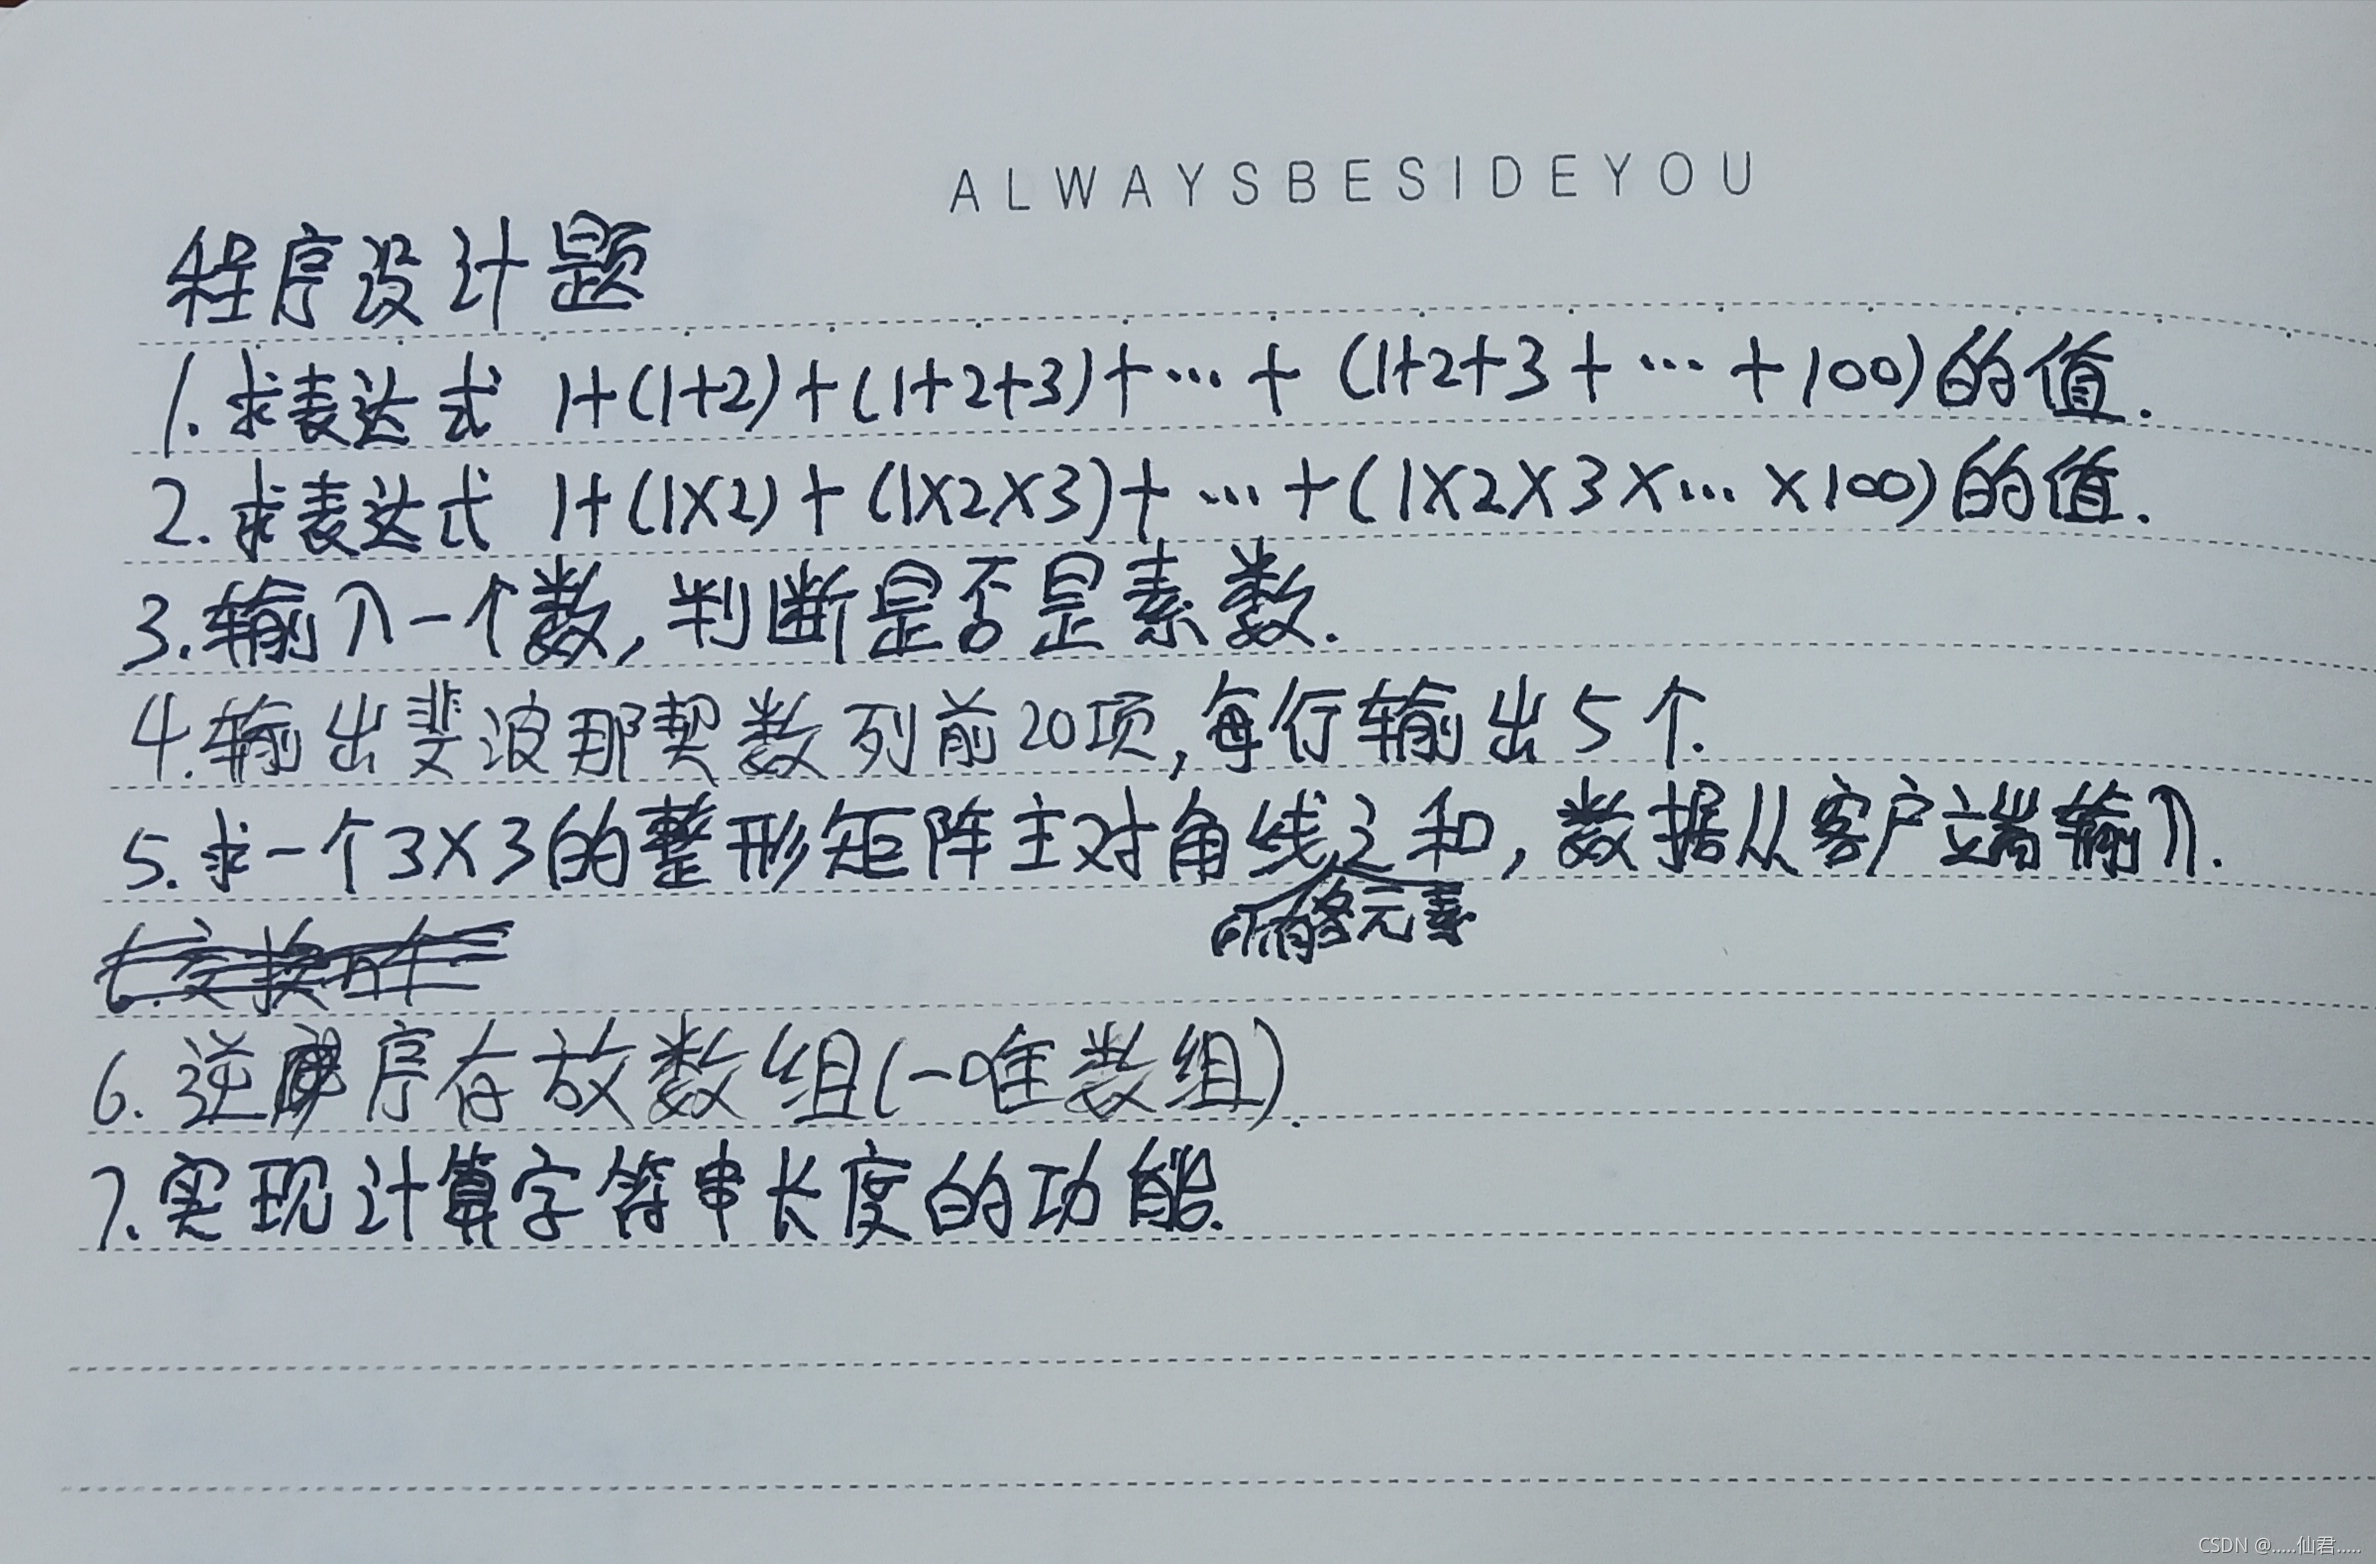 ALWAYSBESIDEYOU
程序设计题
1.求表达式 1+(1+2)+(1+2+3)+…+(1+2+3+…+100)的值.
2.求表达式 1+(1×2)+(1×2×3)+…+(1×2×3×…×100)的值.
3.输入一个数,判断是否是素数.
4.输出斐波那契数列前20项,每行输出5个.
5.求一个3×3的整形矩阵主对角线之和,数据从客户端输入.
所有元素
6.交换
6.逆序存放数组(一唯数组).
7.实现计算字符串长度的功能.
CSDN @.....仙君.....